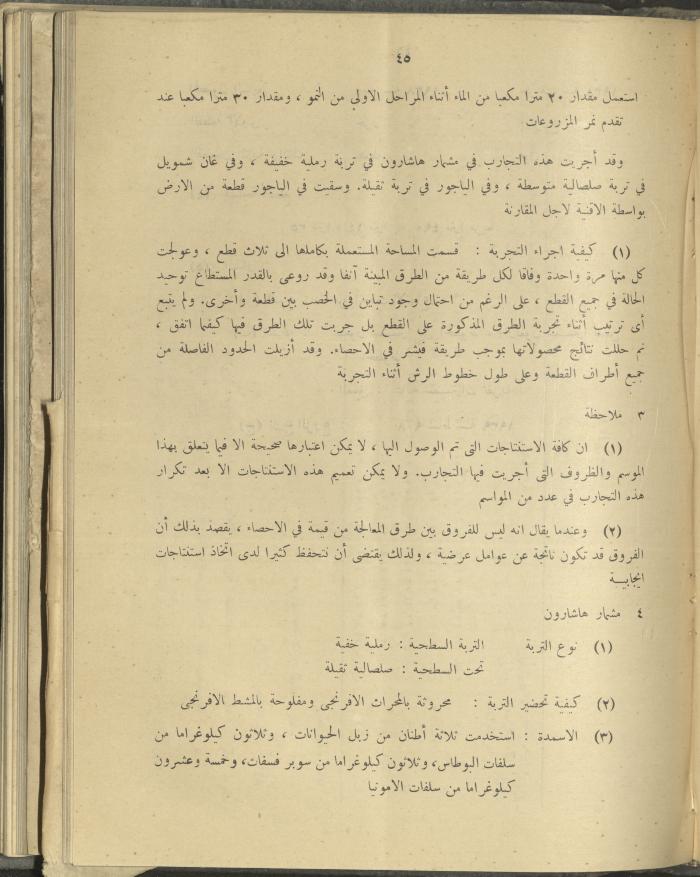 ٤٥
استعمل مقدار ٢٠ مترا مكعبا من الماء أثناء المراحل الاولي من النمو ، ومقدار ٣٠ مترا مكعبا عند
تقدم نمر المزروعات
وقد أجريت هذه التجارب في مشمار هاشارون في تربة رملية خفيفة ، وفي غان شمويل
في تربة صلصالية متوسطة ، وفي الياجور في تربة ثقيلة. وسقيت في الياجور قطعة من الارض
بواسطة الاقنية لاجل المقارنة
(١) كيفية اجراء التجربة : قسمت المساحة المستعملة بكاملها الى ثلاث قطع ، وعولجت
كل منها مرة واحدة وفاقا لكل طريقة من الطرق المبينة آنفا وقد روعى بالقدر المستطاع توحيد
الحالة في جميع القطع ، على الرغم من احتمال وجود تباين في الخصب بين قطعة وأخرى. ولم يتبع
أى ترتيب أثناء تجربة الطرق المذكورة على القطع بل جربت تلك الطرق فيها كيفما اتفق ،
ثم حللت نتائج محصولاتها بموجب طريقة فيشر في الاحصاء. وقد أزيلت الحدود الفاصلة من
جميع أطراف القطعة وعلى طول خطوط الرش أثناء التجربة
٣ ملاحظة
(١) ان كافة الاستنتاجات التى تم الوصول اليها ، لا يمكن اعتبارها صحيحة الا فيما يتعلق بهذا
الموسم والظروف التى أجريت فيها التجارب. ولا يمكن تعميم هذه الاستنتاجات الا بعد تكرار
هذه التجارب في عدد من المواسم
(٢) وعندما يقال انه ليس للفروق بين طرق المعالجة من قيمة في الاحصاء ، يقصد بذلك أن
الفروق قد تكون ناتجة عن عوامل عرضية ، ولذلك يقتضى أن نتحفظ كثيرا لدى اتخاذ استنتاجات
ايجابيـــة
٤ مشمار هاشارون
(١) نوع التربة التربة السطحية : رملية خفية
تحت السطحية : صلصالية ثقيلة
(٢) كيفية تحضير التربة : محروثة بالمحراث الافرنجى ومفلوحة بالمشط الافرنجى
(٣) الاسمدة : استخدمت ثلاثة أطنان من زبل الحيوانات ، وثلاثون كيلوغراما من
سلفات البوطاس، وثلاثون كيلوغراما من سوبر فسفات، وخمسة وعشرون
كيلوغراما من سلفات الامونيا